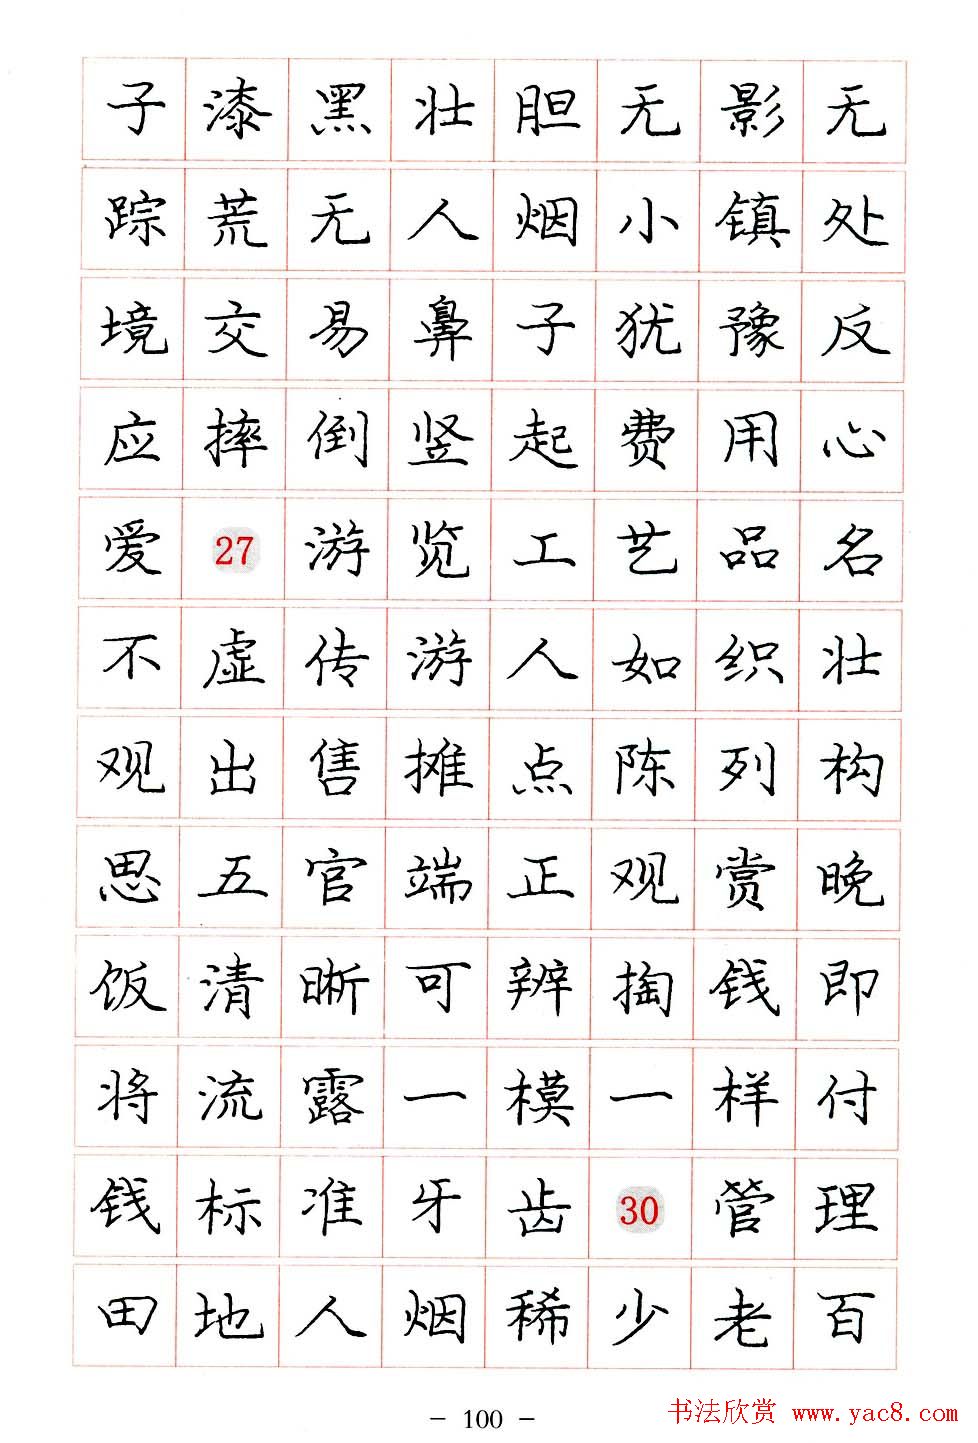 子漆黑壮胆无影无
踪荒无人烟小镇处
境交易鼻子犹豫反
应摔倒竖起费用心
爱27游览工艺品名
不虚传游人如织壮
观出售摊点陈列构
思五官端正观赏晚
饭清晰可辨掏钱即
将流露一模一样付
钱标准牙齿30管理
田地人烟稀少老百
- 100 -
书法欣赏 www.yac8.com